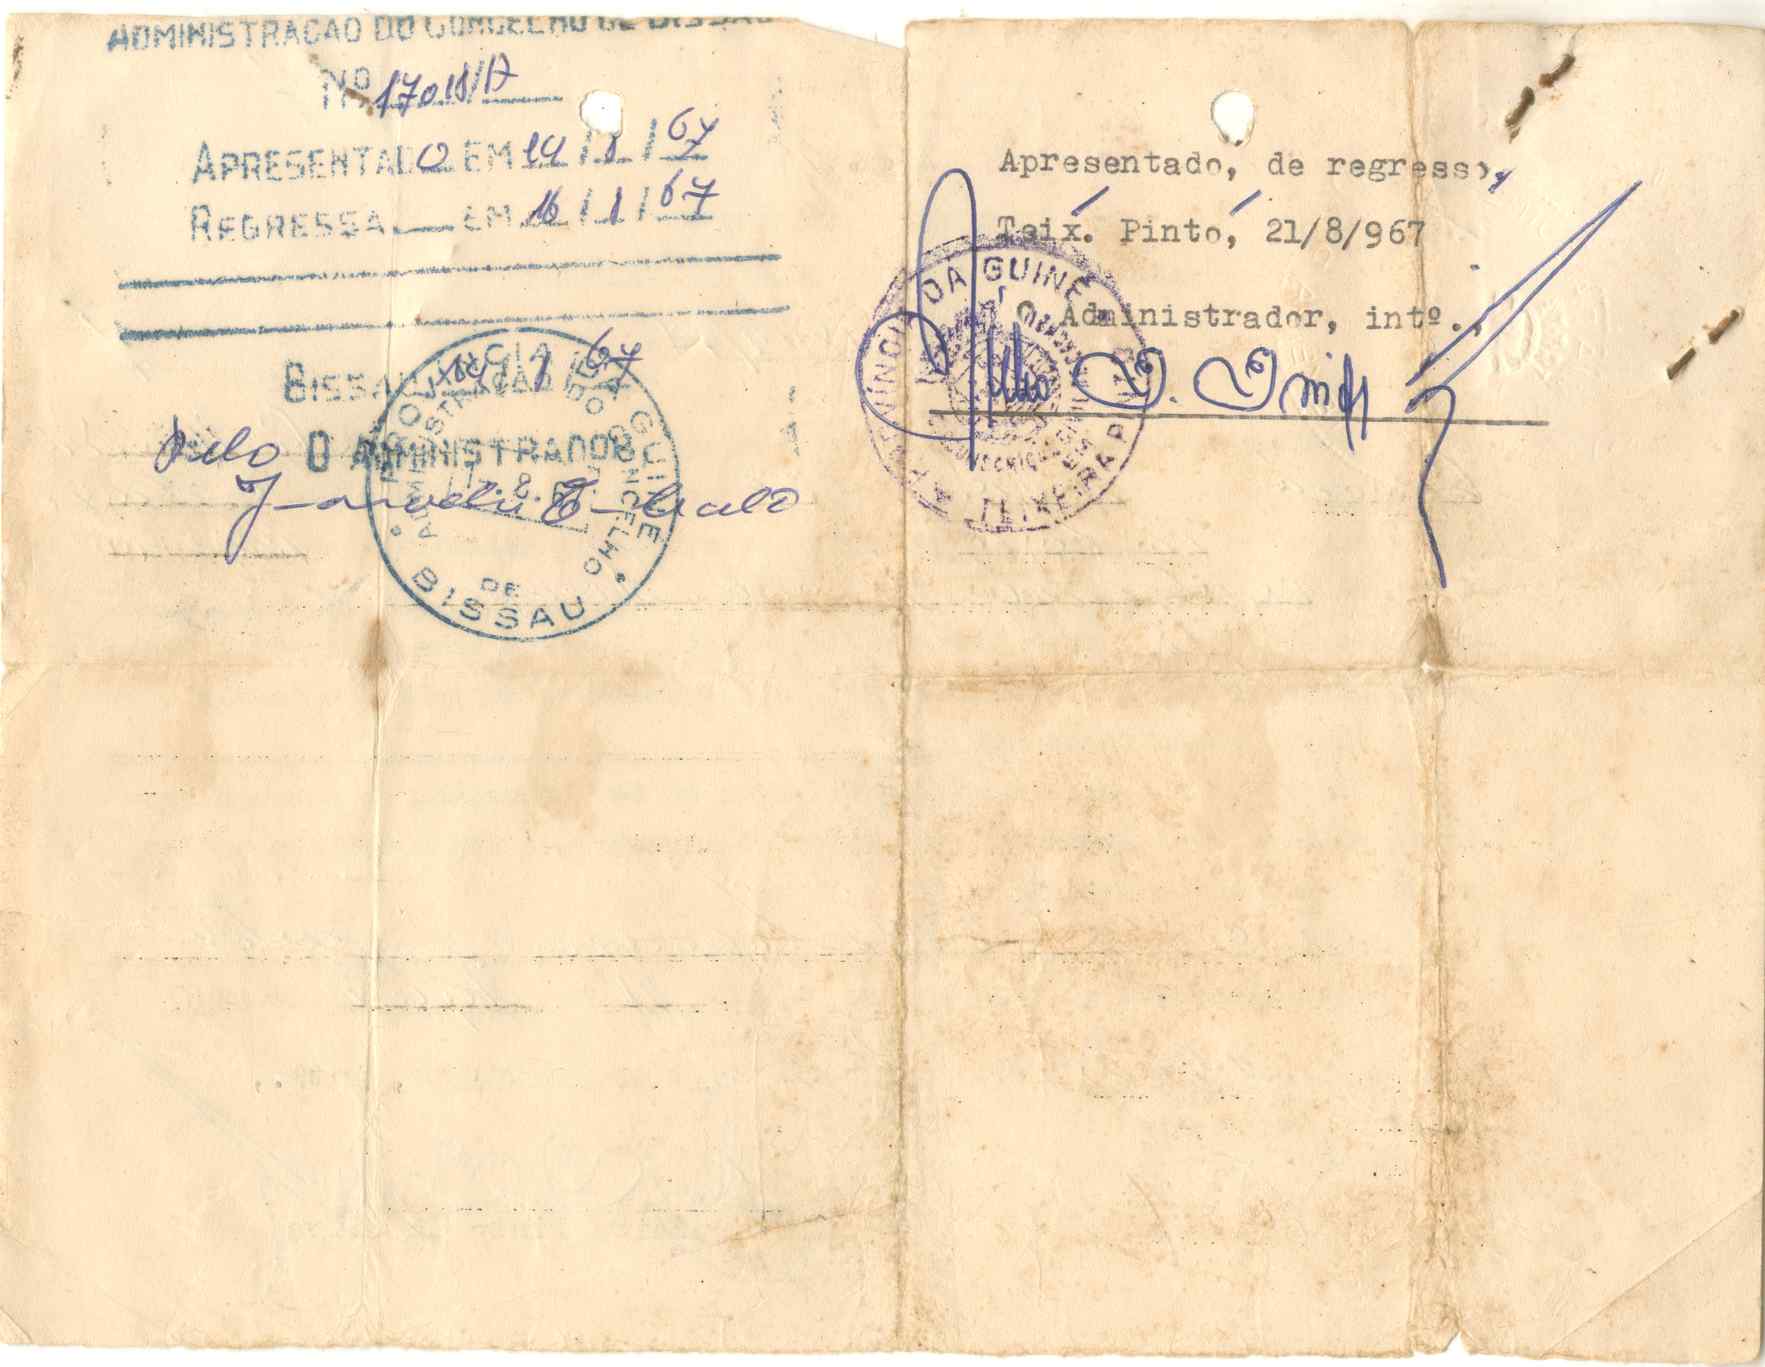 ADMINISTRACAO DO CONCELHO DE BISSAU
Nº 170
APRESENTADO EM 14/8/67
REGRESSA EM 16/8/67
BISSAU 67
Pelo O ADMINISTRADOR
PROVINCIA DA GUINÉ
ADMINISTRAÇÃO DO CONCELHO
DE
BISSAU
Apresentado, de regresso,
Teix. Pinto, 21/8/967
O Administrador, intº.,
PROVÍNCIA DA GUINÉ
TEIXEIRA PINTO